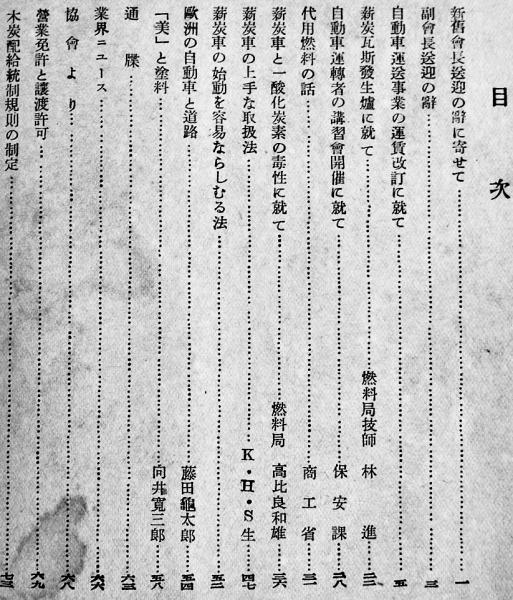 目次
新舊會長送迎の辭に寄せて……一
副會長送迎の辭……三
自動車運送事業の運賃改訂に就て……五
薪炭瓦斯發生爐に就て……燃料局技師 林進……三
自動車運轉者の講習會開催に就て……保安課……一八
代用燃料の話……商工省……三
薪炭車と一酸化炭素の毒性に就て……燃料局 高比良和雄……三六
薪炭車の上手な取扱法……K・H・S生……四七
薪炭車の始動を容易ならしむる法……五二
歐洲の自動車と道路……藤田龜太郎……五四
「美」と塗料……向井寬三郎……五八
通牒……六三
業界ニュース……六六
協會より……六八
營業免許と讓渡許可……六九
木炭配給統制規則の制定……七三